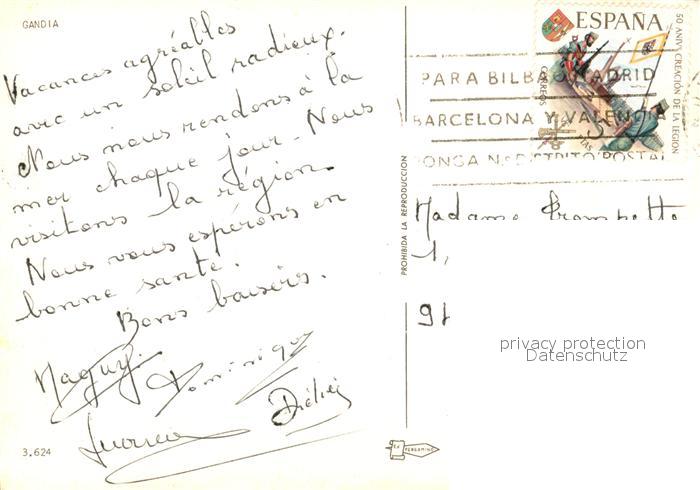 GANDIA
Vacances agréables
avec un soleil radieux.
Nous nous rendons à la
mer chaque jour. Nous
visitons la région
Nous vous espérons en
bonne santé.
Bons baisers.
Maguy. Dominique
Didier
3.624
PROHIBIDA LA REPRODUCCION
PERGAMINO
ESPAÑA
50 ANIV. CREACION DE LA LEGION
CORREOS
PTAS
PARA BILBAO, MADRID
BARCELONA Y VALENCIA
PONGA Nº DISTRITO POSTAL
Madame
1,
91
privacy protection
Datenschutz